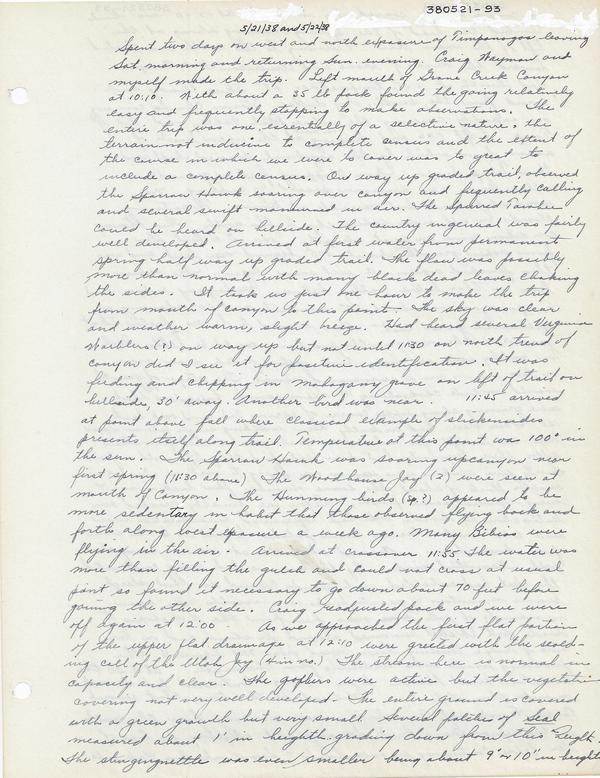 380521-93
5/21/38 and 5/22/38
Spent two days on west and north exposure of Timpanogos leaving
Sat. morning and returning Sun. evening. Craig Wayman and
myself made the trip. Left mouth of Grove Creek Canyon
at 10:10. With about a 35 lb pack found the going relatively
easy and frequently stopping to make observations. The
entire trip was one essentially of a selective nature, the
terrain not inducive to complete census and the extent of
the course in which we were to cover was to great to
include a complete census. On way up graded trail, observed
the Sparrow Hawk soaring over canyon and frequently calling
and several swift manuvured in air. The Spurred Towhee
could be heard on hillside. The country in general was fairly
well developed. Arrived at first water from permanent
spring half way up graded trail. The flow was possibly
more than normal with many black dead leaves choking
the sides. It took us just one hour to make the trip
from mouth of canyon to this point. The sky was clear
and weather warm, slight breeze. Had heard several Virginia
Warblers (?) on way up but not until 11:30 on north trend of
canyon did I see it for positive identification. It was
feeding and chipping in Mahogany grove on left of trail on
hillside, 30' away. Another bird was near. 11:45 arrived
at point above fall where classical example of slickensides
presents itself along trail. Temperature at this point was 100° in
the sun. The Sparrow Hawk was soaring upcanyon near
first spring (11:30 above) The Woodhouse Jay (2) were seen at
mouth of Canyon. The Humming birds (sp.?) appeared to be
more sedentary in habit that those observed flying back and
forth along west exposure a week ago. Many Bibios were
flying in the air. Arrived at crossover 11:55 The water was
more than filling the gulch and could not cross at usual
point so found it necessary to go down about 70 feet before
gaining the other side. Craig readjusted pack and we were
off again at 12:00. As we approached the first flat portion
of the upper flat drainage at 12:10 were greeted with the scold-
ing call of the Utah Jay (4 in no.) The stream here is normal in
capacity and clear. The gophers were active but the vegetati
covering not very well developed. The entire ground is covered
with a green growth but very small. Several patches of Seal
measured about 1' in heighth grading down from this height.
The stingingnettle was even smaller being about 9" or 10" in heighth